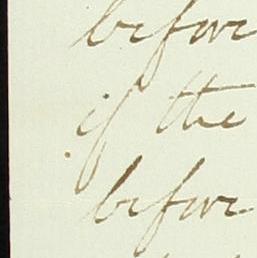 before
if the
before